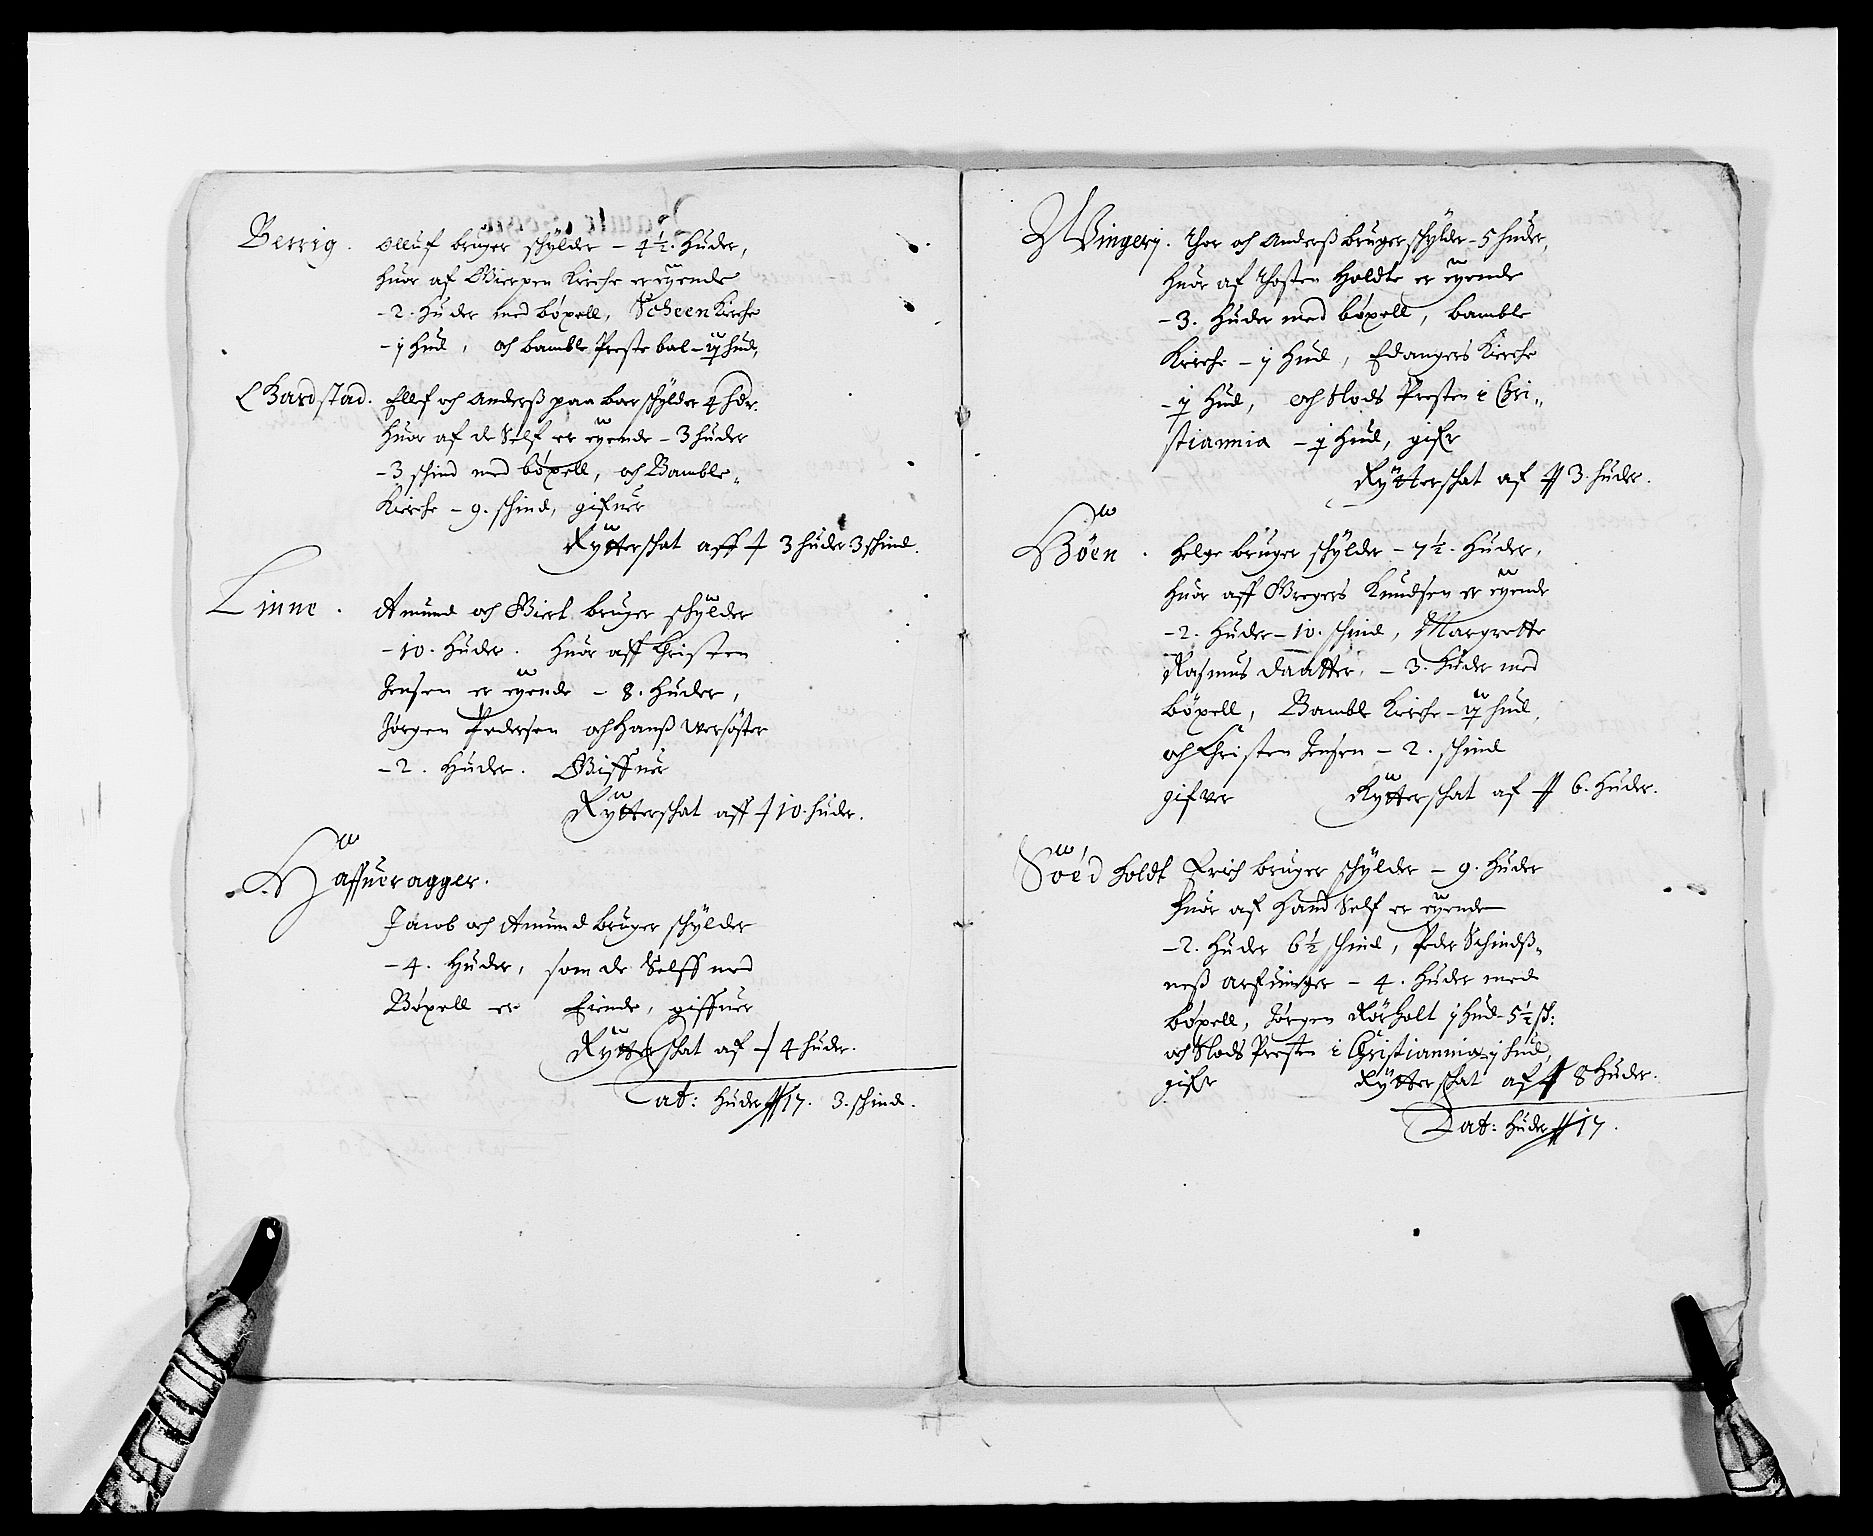 Berrig. Olluf bruger schÿlder - 4½. Huder,
huor af Gierpen Kirche er eÿende
- 2. Huder med böxell, Scheen Kirche
- j Hud, och Bamble Preste bal - ½ hud,
Bardstad. Ellef och Anderß paa boer schÿlder 4 hdr.
huor af de Self er eÿende - 3 huder
- 3 schind med böxell, och Bamble
Kierche - 9. schind, gifuer
Rÿtterschat aff 3 huder 3 schind.
Linne. Amund och Giert bruger schÿlder
- 10. Huder. Huor aff Christen
Jensen er eÿende - 8. Huder,
Jörgen Pedersen och Hanß wersöster
- 2. Huder. Giffuer
Rÿtterschat aff 10. huder.
Haffuoragger.
Jacob och Amund bruger schÿlder
- 4. Huder, som de Selff med
Böxell er Eiende, giffuer
Rÿtterschat af 4 huder.
Lat: Huder 17. 3. schind.
Wingerj. Thor och Anderß bruger schÿlder - 5 huder,
huor af Thosten Holdte er eÿende
- 3. Huder med böxell, Bamble
Kirche - j Hud, Edangers Kierche
- ½ Hud, och Slods Presten i Chri„
stiannia - ½ Hud, gifr
Rÿtterschat af 3. huder.
Böen. Helge bruger schÿlder - 7½. Huder,
huor aff Gregers Knudsen er eÿende
- 2. Huder - 10. schind, Margrette
Rasmus daatter, - 3. huder med
böxell, Bamble Kirche - ½ hud,
och Christen Jensen - 2. schind
gifver Rÿtterschat af 6. Huder.
Söed Holdt Erich bruger schÿlder - 9. Huder
huor af Hand Self er eÿende
- 2. Huder 6½ schind, Peder Schindß„
neß arfuinger - 4. Huder med
böxell, Jörgen Rörholt j hud - 5½ sch:
och Slods Presten i Christiannia j hud,
gifr Rÿtterschat af 8 Huder.
Lat: Huder 17.